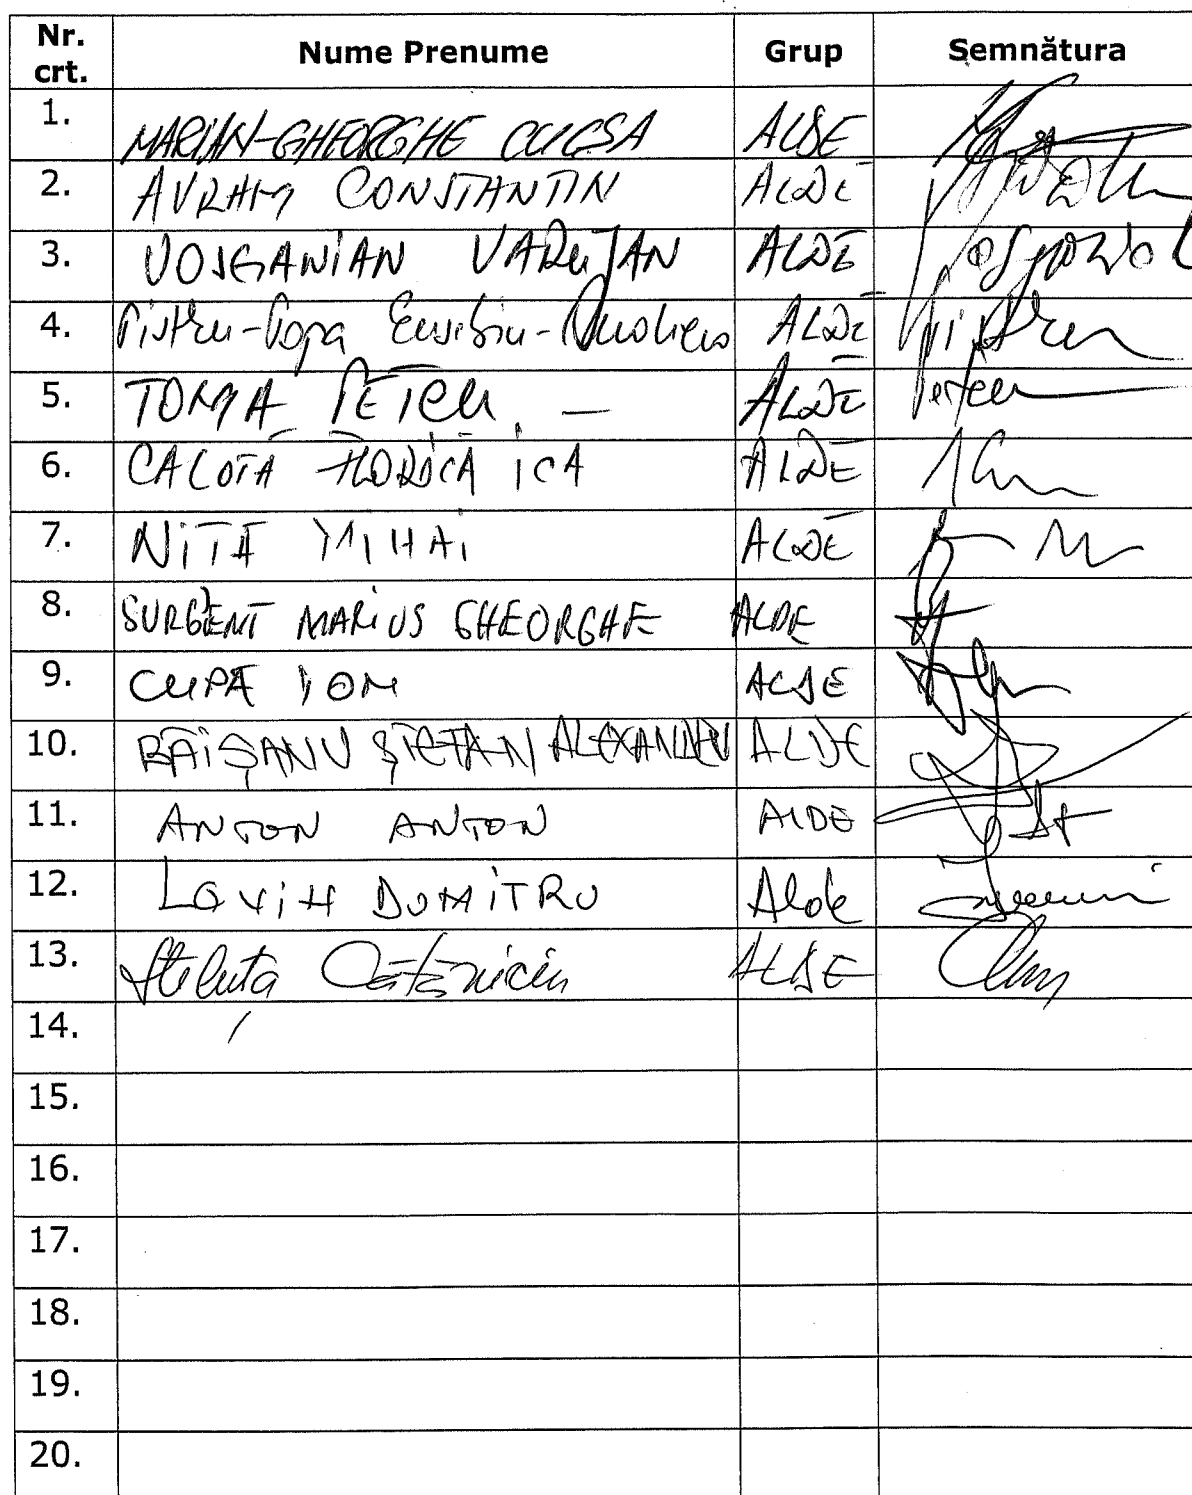 Nr. crt. Nume Prenume Grup Semnătura
1. MARIAN-GHEORGHE CUCSA ALDE
2. AVRAM CONSTANTIN ALDE
3. VOSGANIAN VARUJAN ALDE
4. Pistru-Popa Eusebiu- ALDE
5. TOMA PETCU — ALDE Petcu
6. CALOTĂ FLORICĂ ICĂ ALDE
7. NIȚĂ MIHAI ALDE
8. SURGENT MARIUS GHEORGHE ALDE
9. CUPĂ ION ALDE
10. BĂIȘANU ȘTEFAN ALEXANDRU ALDE
11. ANTON ANTON ALDE
12. LOVIN DUMITRU Alde
13. Steluța Cătăniciu ALDE
14.
15.
16.
17.
18.
19.
20.